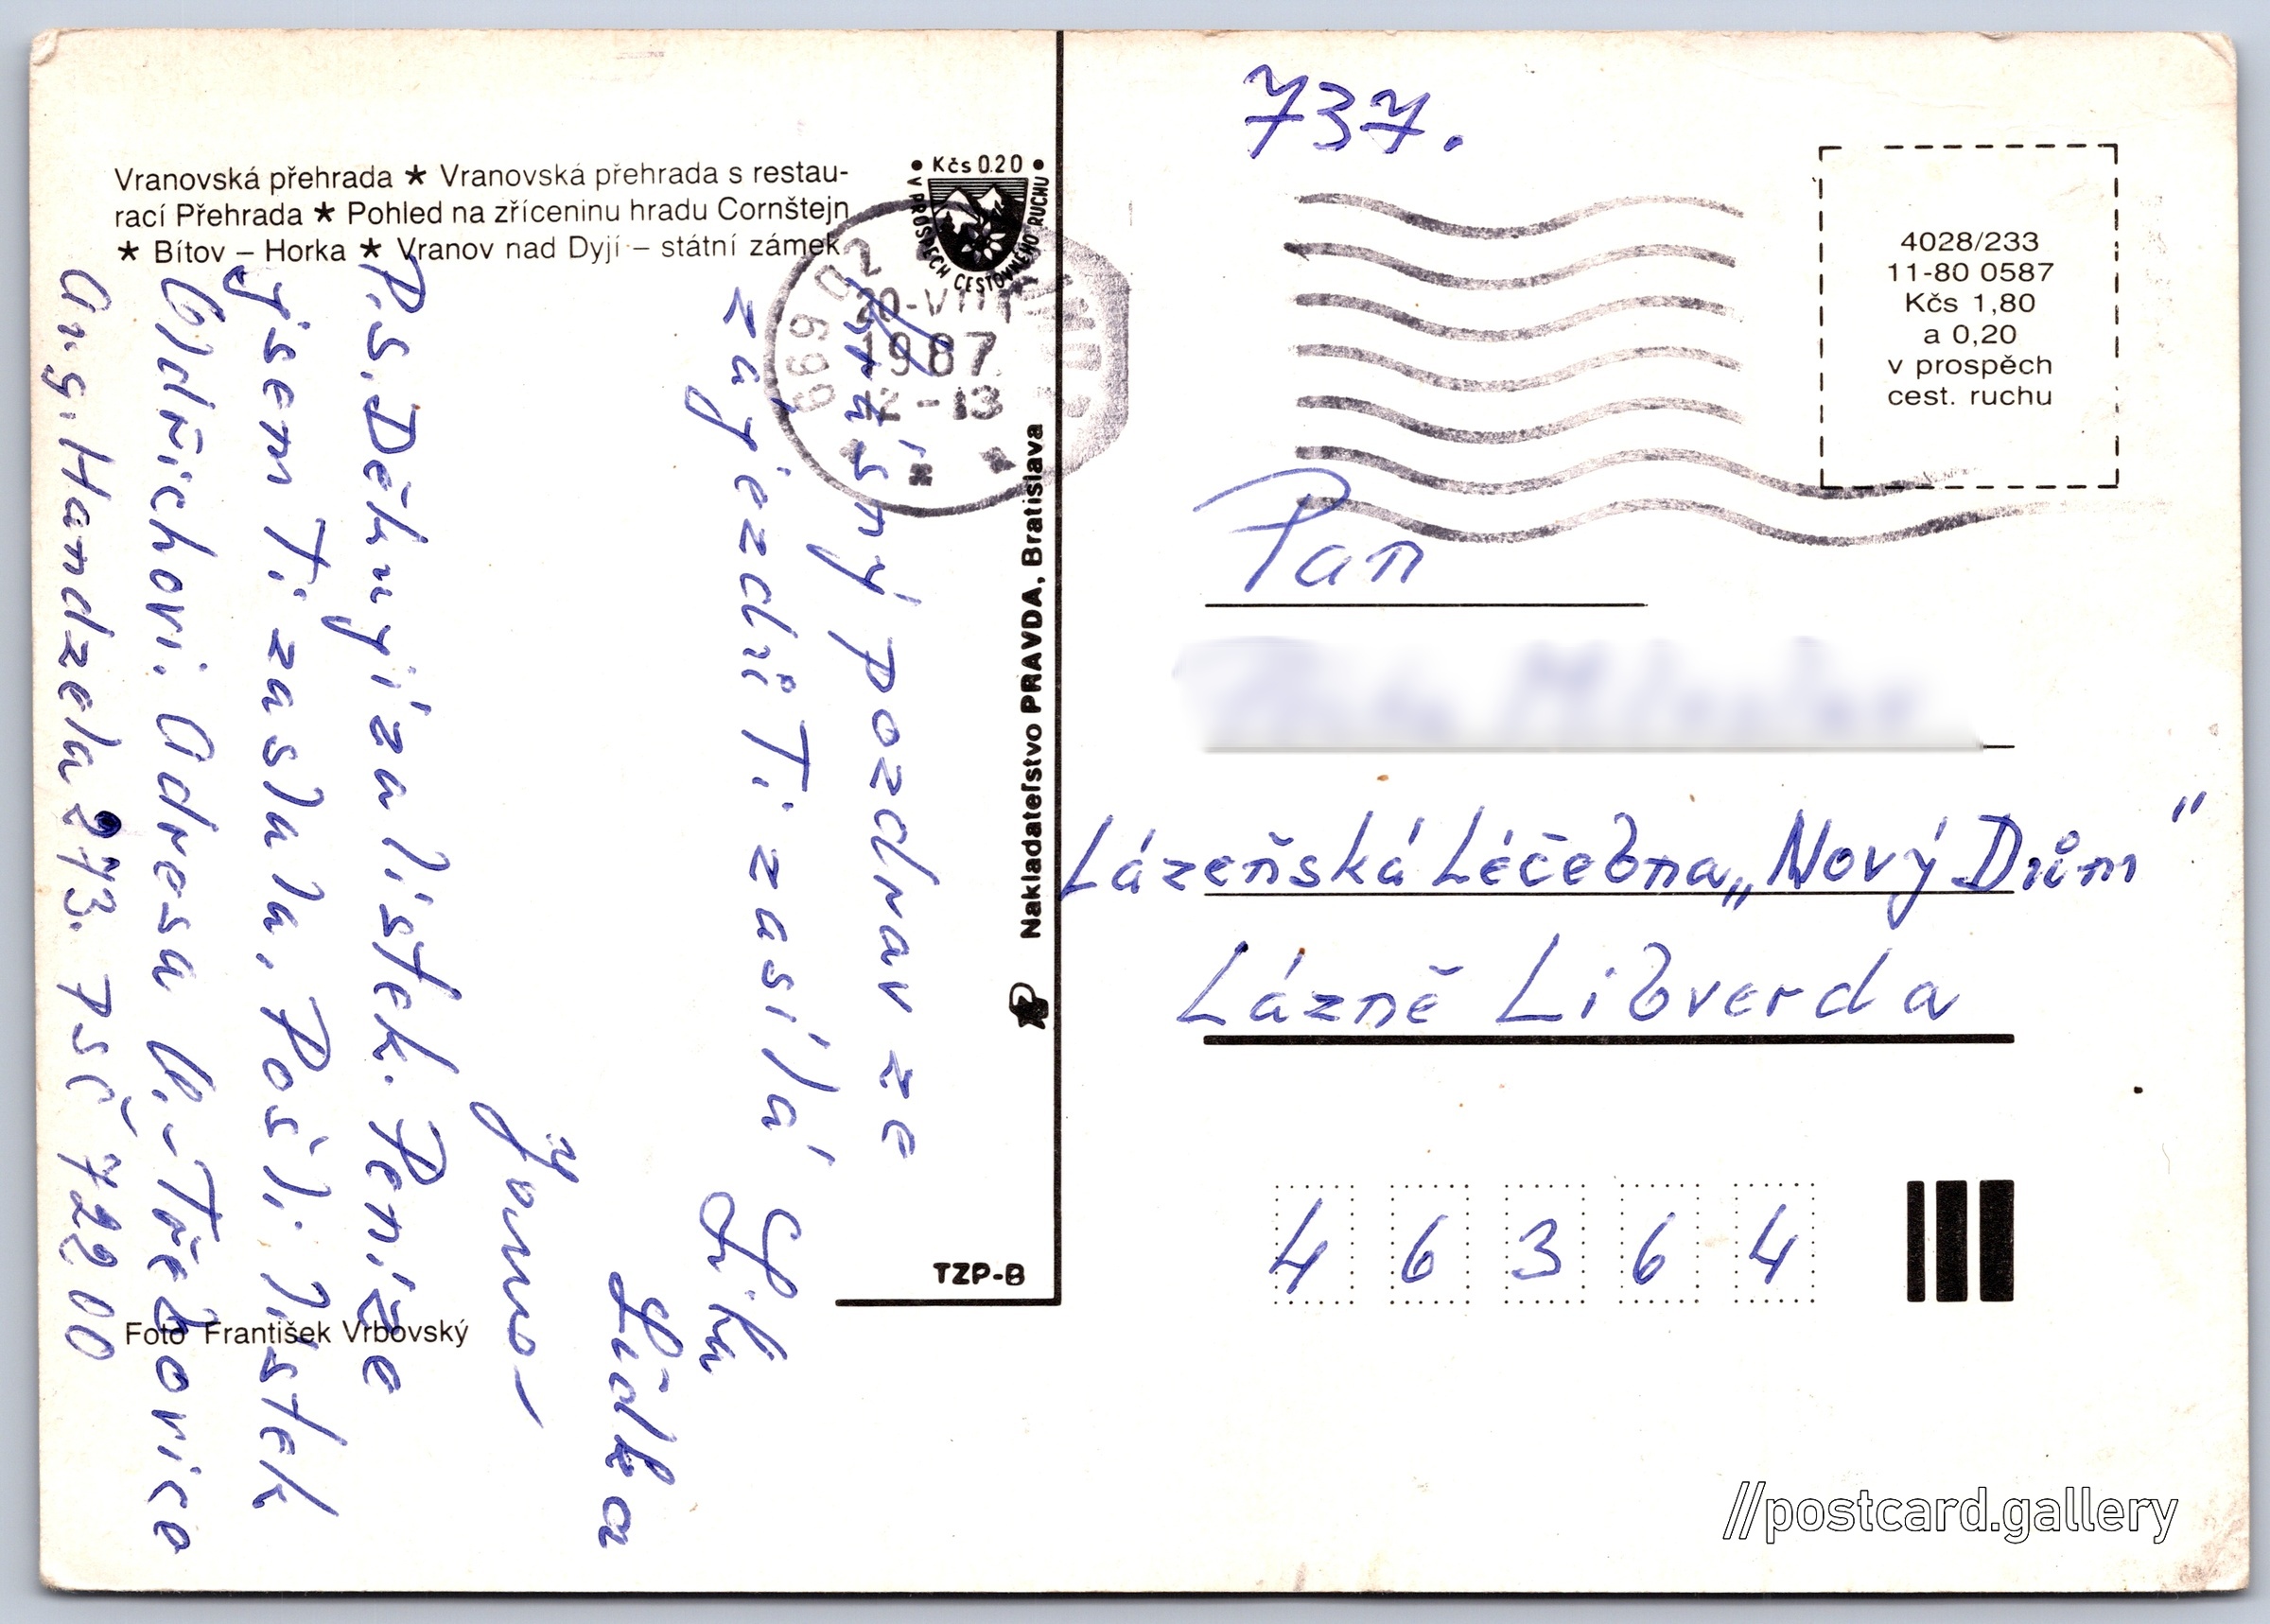 Vranovská přehrada ★ Vranovská přehrada s restau-
rací Přehrada ★ Pohled na zříceninu hradu Cornštejn
★ Bítov – Horka ★ Vranov nad Dyjí – státní zámek
• Kčs 0.20 •
V PROSPĚCH CESTOVNÉHO RUCHU
20-VIII
1987
12-13
669 02
Krásný pozdrav ze
zájezdů Ti zasílá,
Lidka
P.S. Děkuji za lístek. Peníze
jsem Ti zaslala, Pošli lístek
Oldřichovi. Adresa O.-Třebovice
Handzela 273. PSČ 722 00
Foto František Vrbovský
Nakladateľstvo PRAVDA, Bratislava
TZP-B
737.
4028/233
11-80 0587
Kčs 1,80
a 0,20
v prospěch
cest. ruchu
Pan
Lázeňská Léčebna „Nový Dům"
Lázně Libverda
4 6 3 6 4
//postcard.gallery